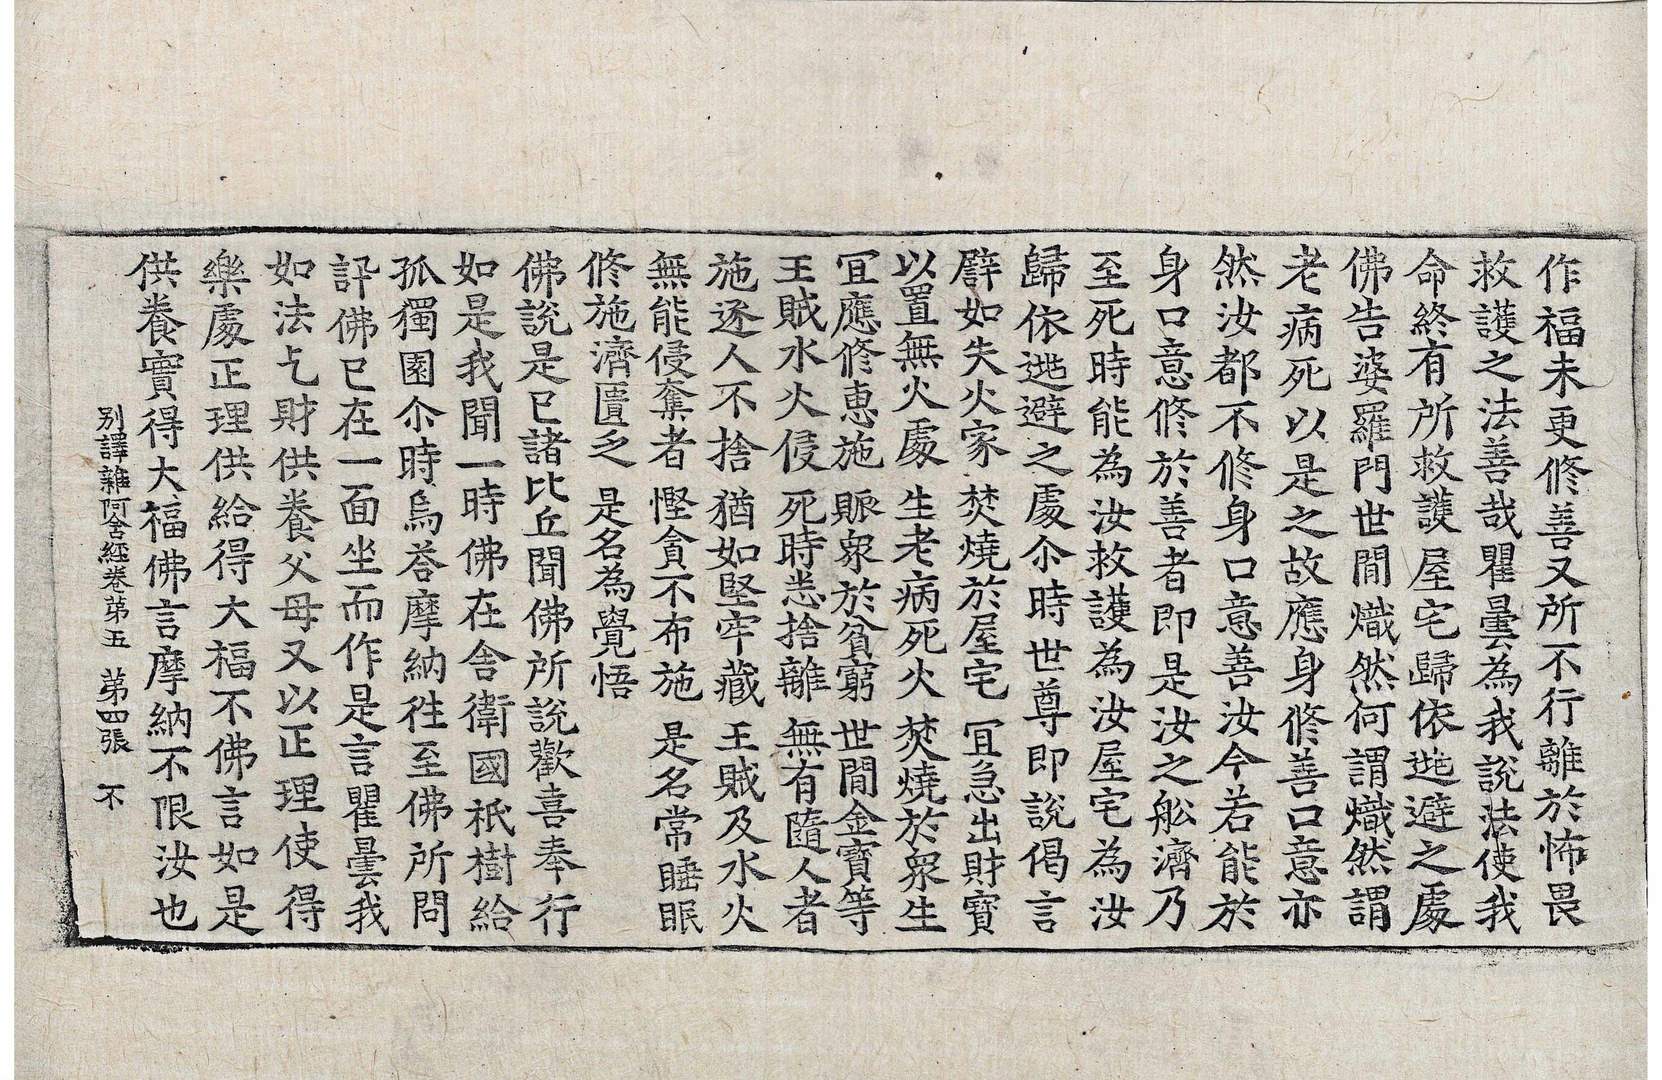 作福未更修善又所不行離於怖畏
救護之法善哉瞿曇為我說法使我
命終有所救護屋宅歸依逃避之處
佛告婆羅門世間熾然何謂熾然謂
老病死以是之故應身修善口意亦
然汝都不修身口意善汝今若能於
身口意修於善者即是汝之舩濟乃
至死時能為汝救護為汝屋宅為汝
歸依逃避之處尒時世尊即說偈言
譬如失火家 焚燒於屋宅 冝急出財寶
以置無火處 生老病死火 焚燒於衆生
冝應修惠施 賑衆於貧窮 世間金寶等
王賊水火侵 死時悉捨離 無有隨人者
施逐人不捨 猶如堅牢藏 王賊及水火
無能侵奪者 慳貪不布施 是名常睡眠
修施濟匱乏 是名為覺悟
佛說是已諸比丘聞佛所說歡喜奉行
如是我聞一時佛在舍衛國祇樹給
孤獨園尒時烏荅摩納徃至佛所問
訊佛已在一面坐而作是言瞿曇我
如法乞財供養父母又以正理使得
樂處正理供給得大福不佛言如是
供養實得大福佛言摩納不限汝也
別譯雜阿含經卷第五 第四張 不